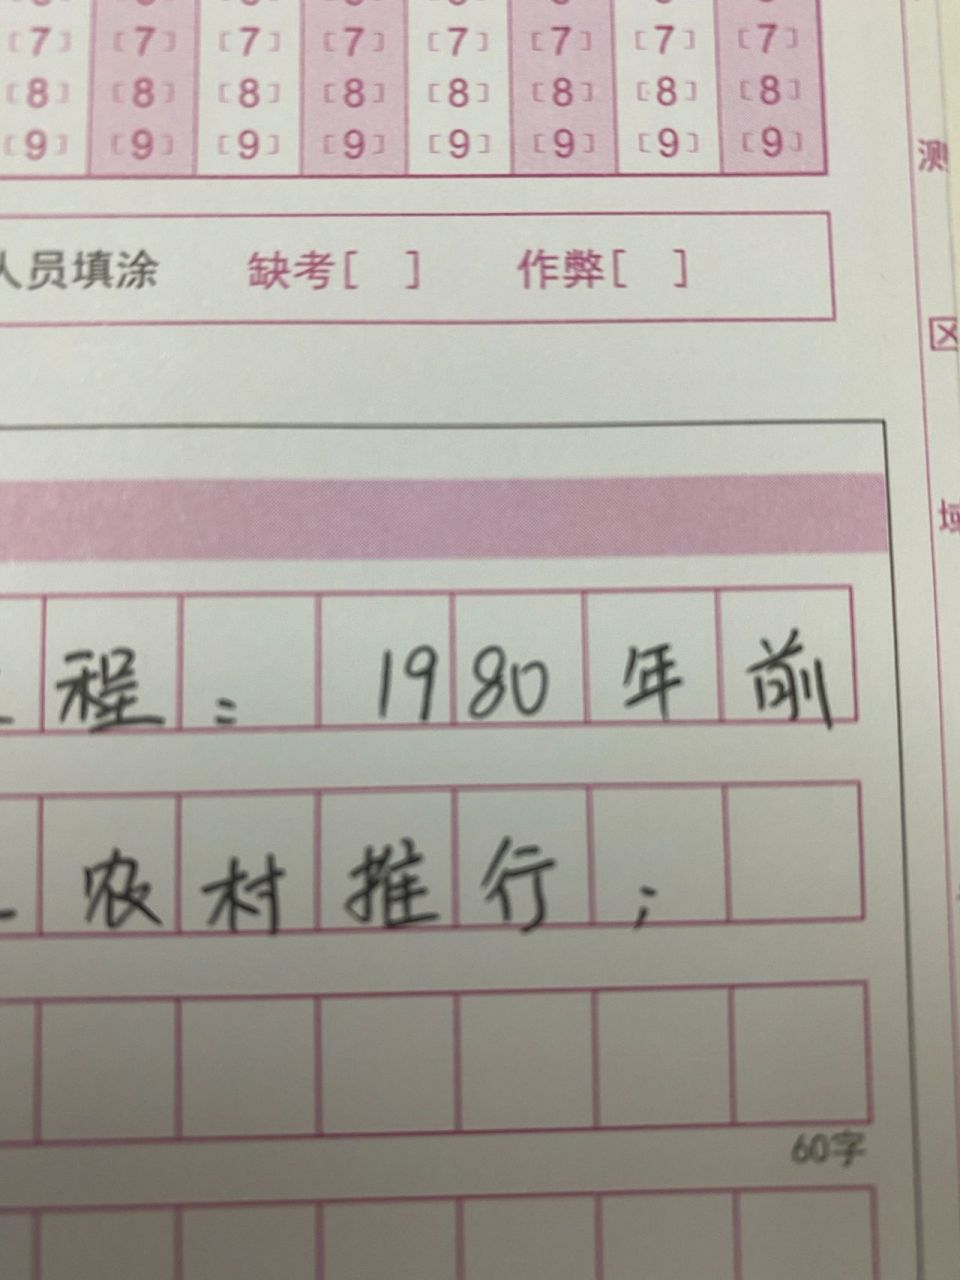 [7] [7] [7] [7] [7] [7] [7] [7]
[8] [8] [8] [8] [8] [8] [8] [8]
[9] [9] [9] [9] [9] [9] [9] [9]
人员填涂 缺考[ ] 作弊[ ]
程：1980年前
农村推行；
60字
测
区
域